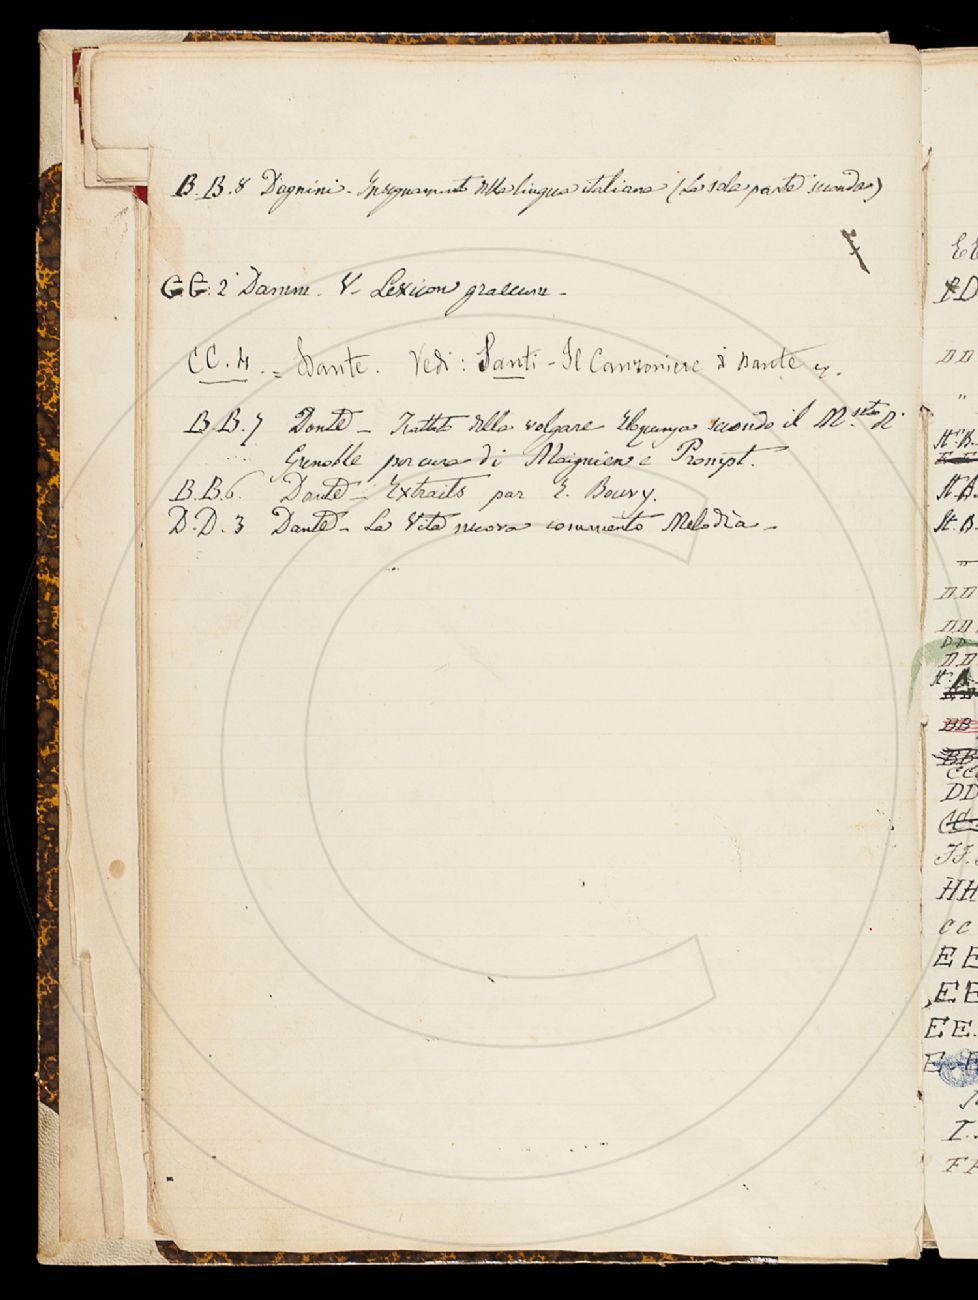 B.B.8 Dagnini - Insegnamento della lingua italiana (La sola parte seconda)
GG. 2 Damm. V- Lexicon graecum -
CC. 4. = Dante. Vedi: Santi - Il Canzoniere di Dante
B.B.7 Dante - Trattato della volgare Eloquenza secondo il M.scto di
Grenoble per cura di Maignien e Prompt.
B.B.6. Dante - Extraits par E. Bouvy.
D.D. 3 Dante - La Vita nuova commento Melodia -
DD
DD
DD
DD
BB
DD
HH
CC
EE
EE
EE.